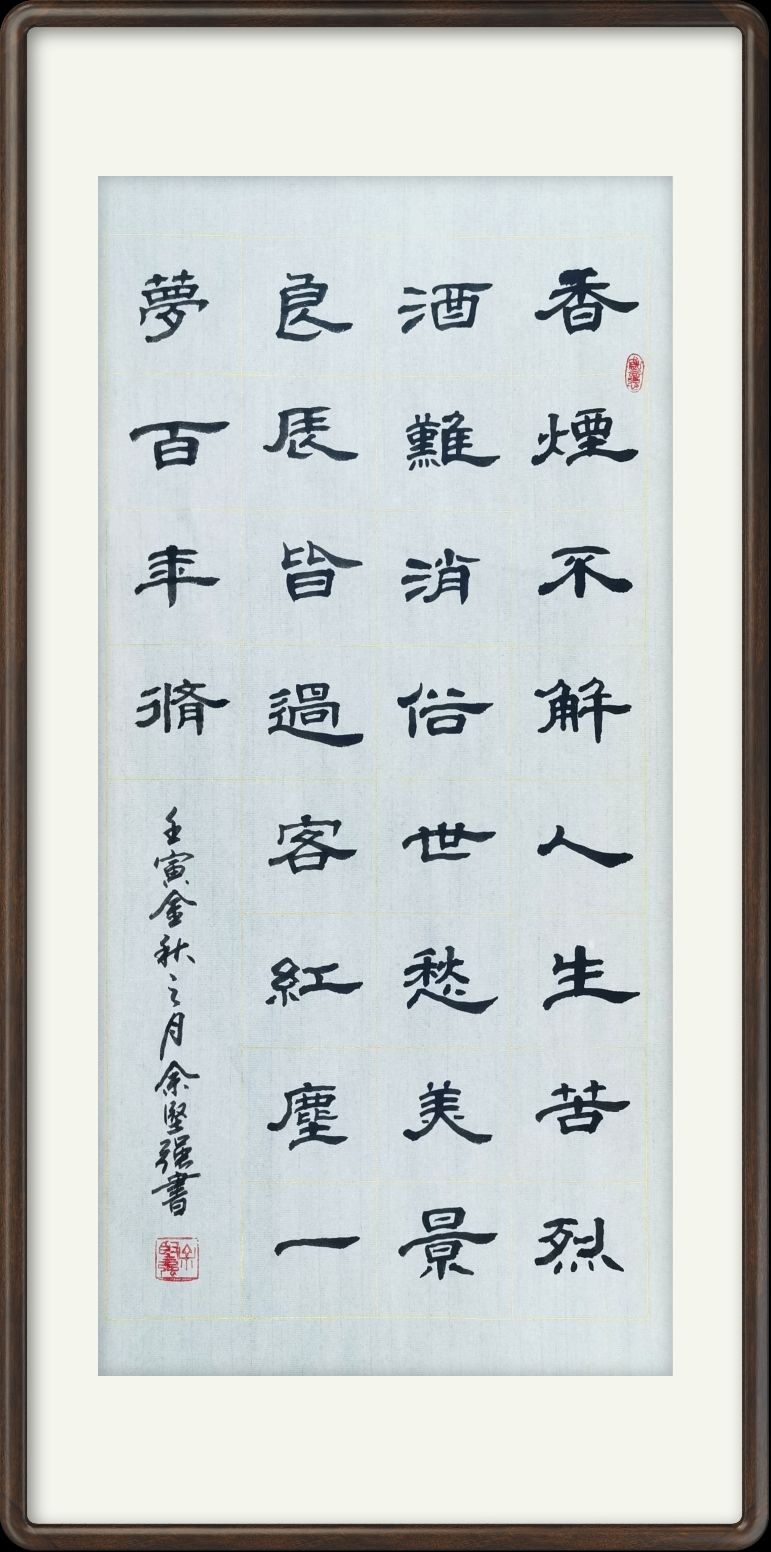 香煙不解人生苦烈
酒難消俗世愁美景
良辰皆過客紅塵一
夢百年脩
壬寅金秋之月余堅強書